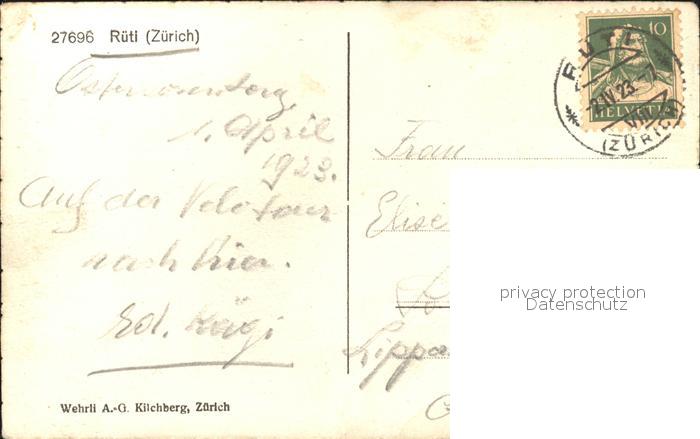 27696 Rüti (Zürich)
Ostermontag
1. April
1923.
Auf der Velotour
nach hier.
Ed. Kägi
Wehrli A.-G. Kilchberg, Zürich
10
HELVETIA
RÜTI
2.IV.23.-7
VIII
(ZÜRICH)
Frau
Elise
privacy protection
Datenschutz